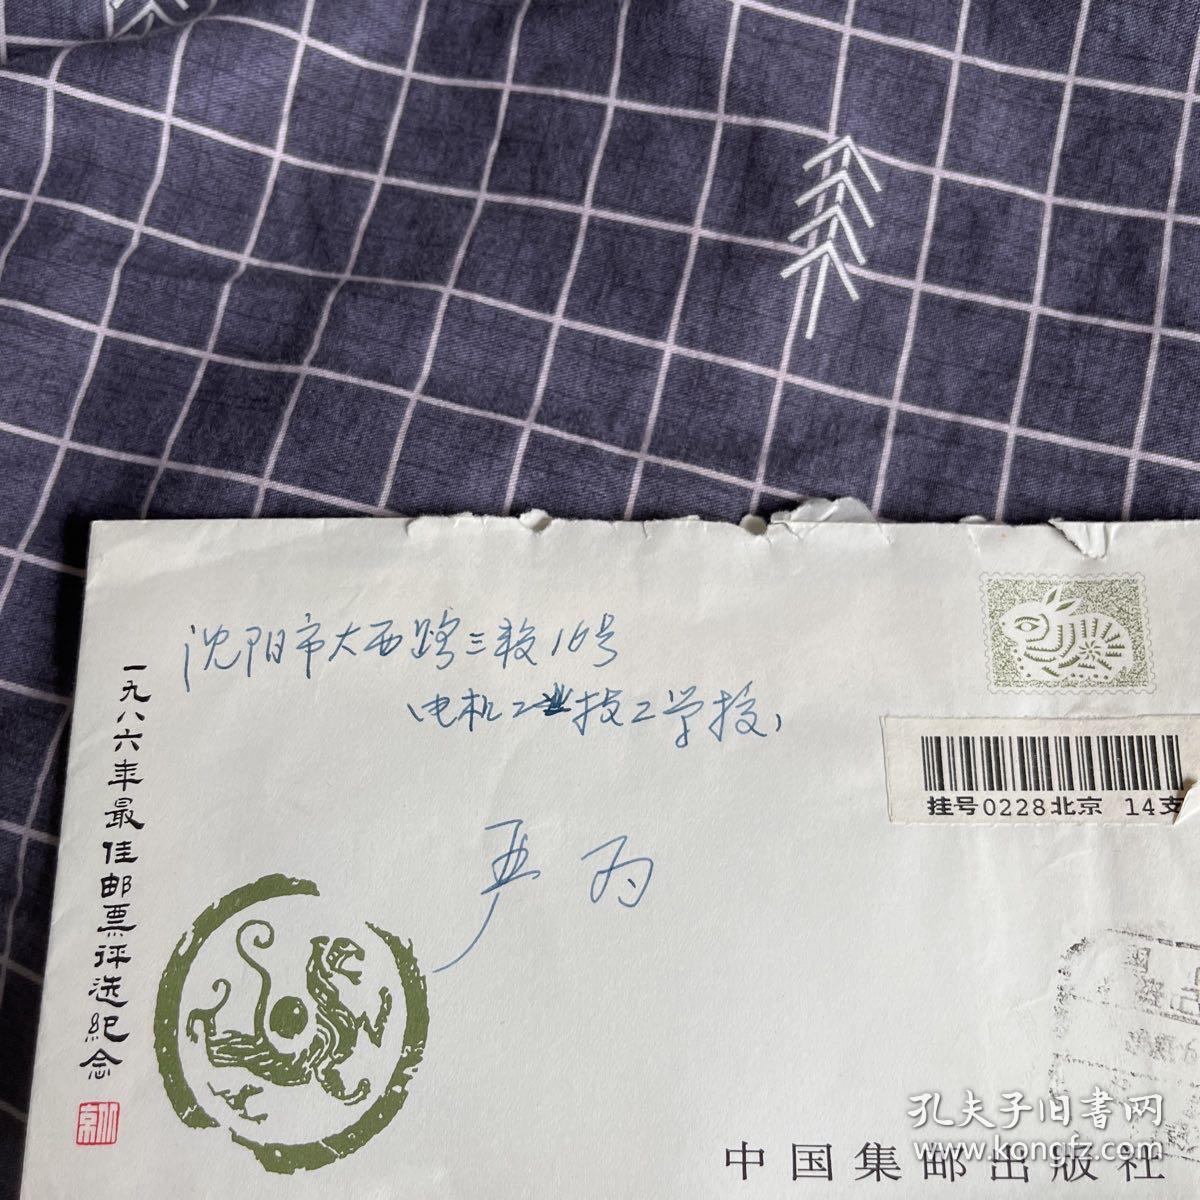 沈阳市大西路三段16号
电机工业技工学校
严为
一九八六年最佳邮票评选纪念
挂号0228北京 14支
中国集邮出版社
孔夫子旧书网
www.kongfz.com